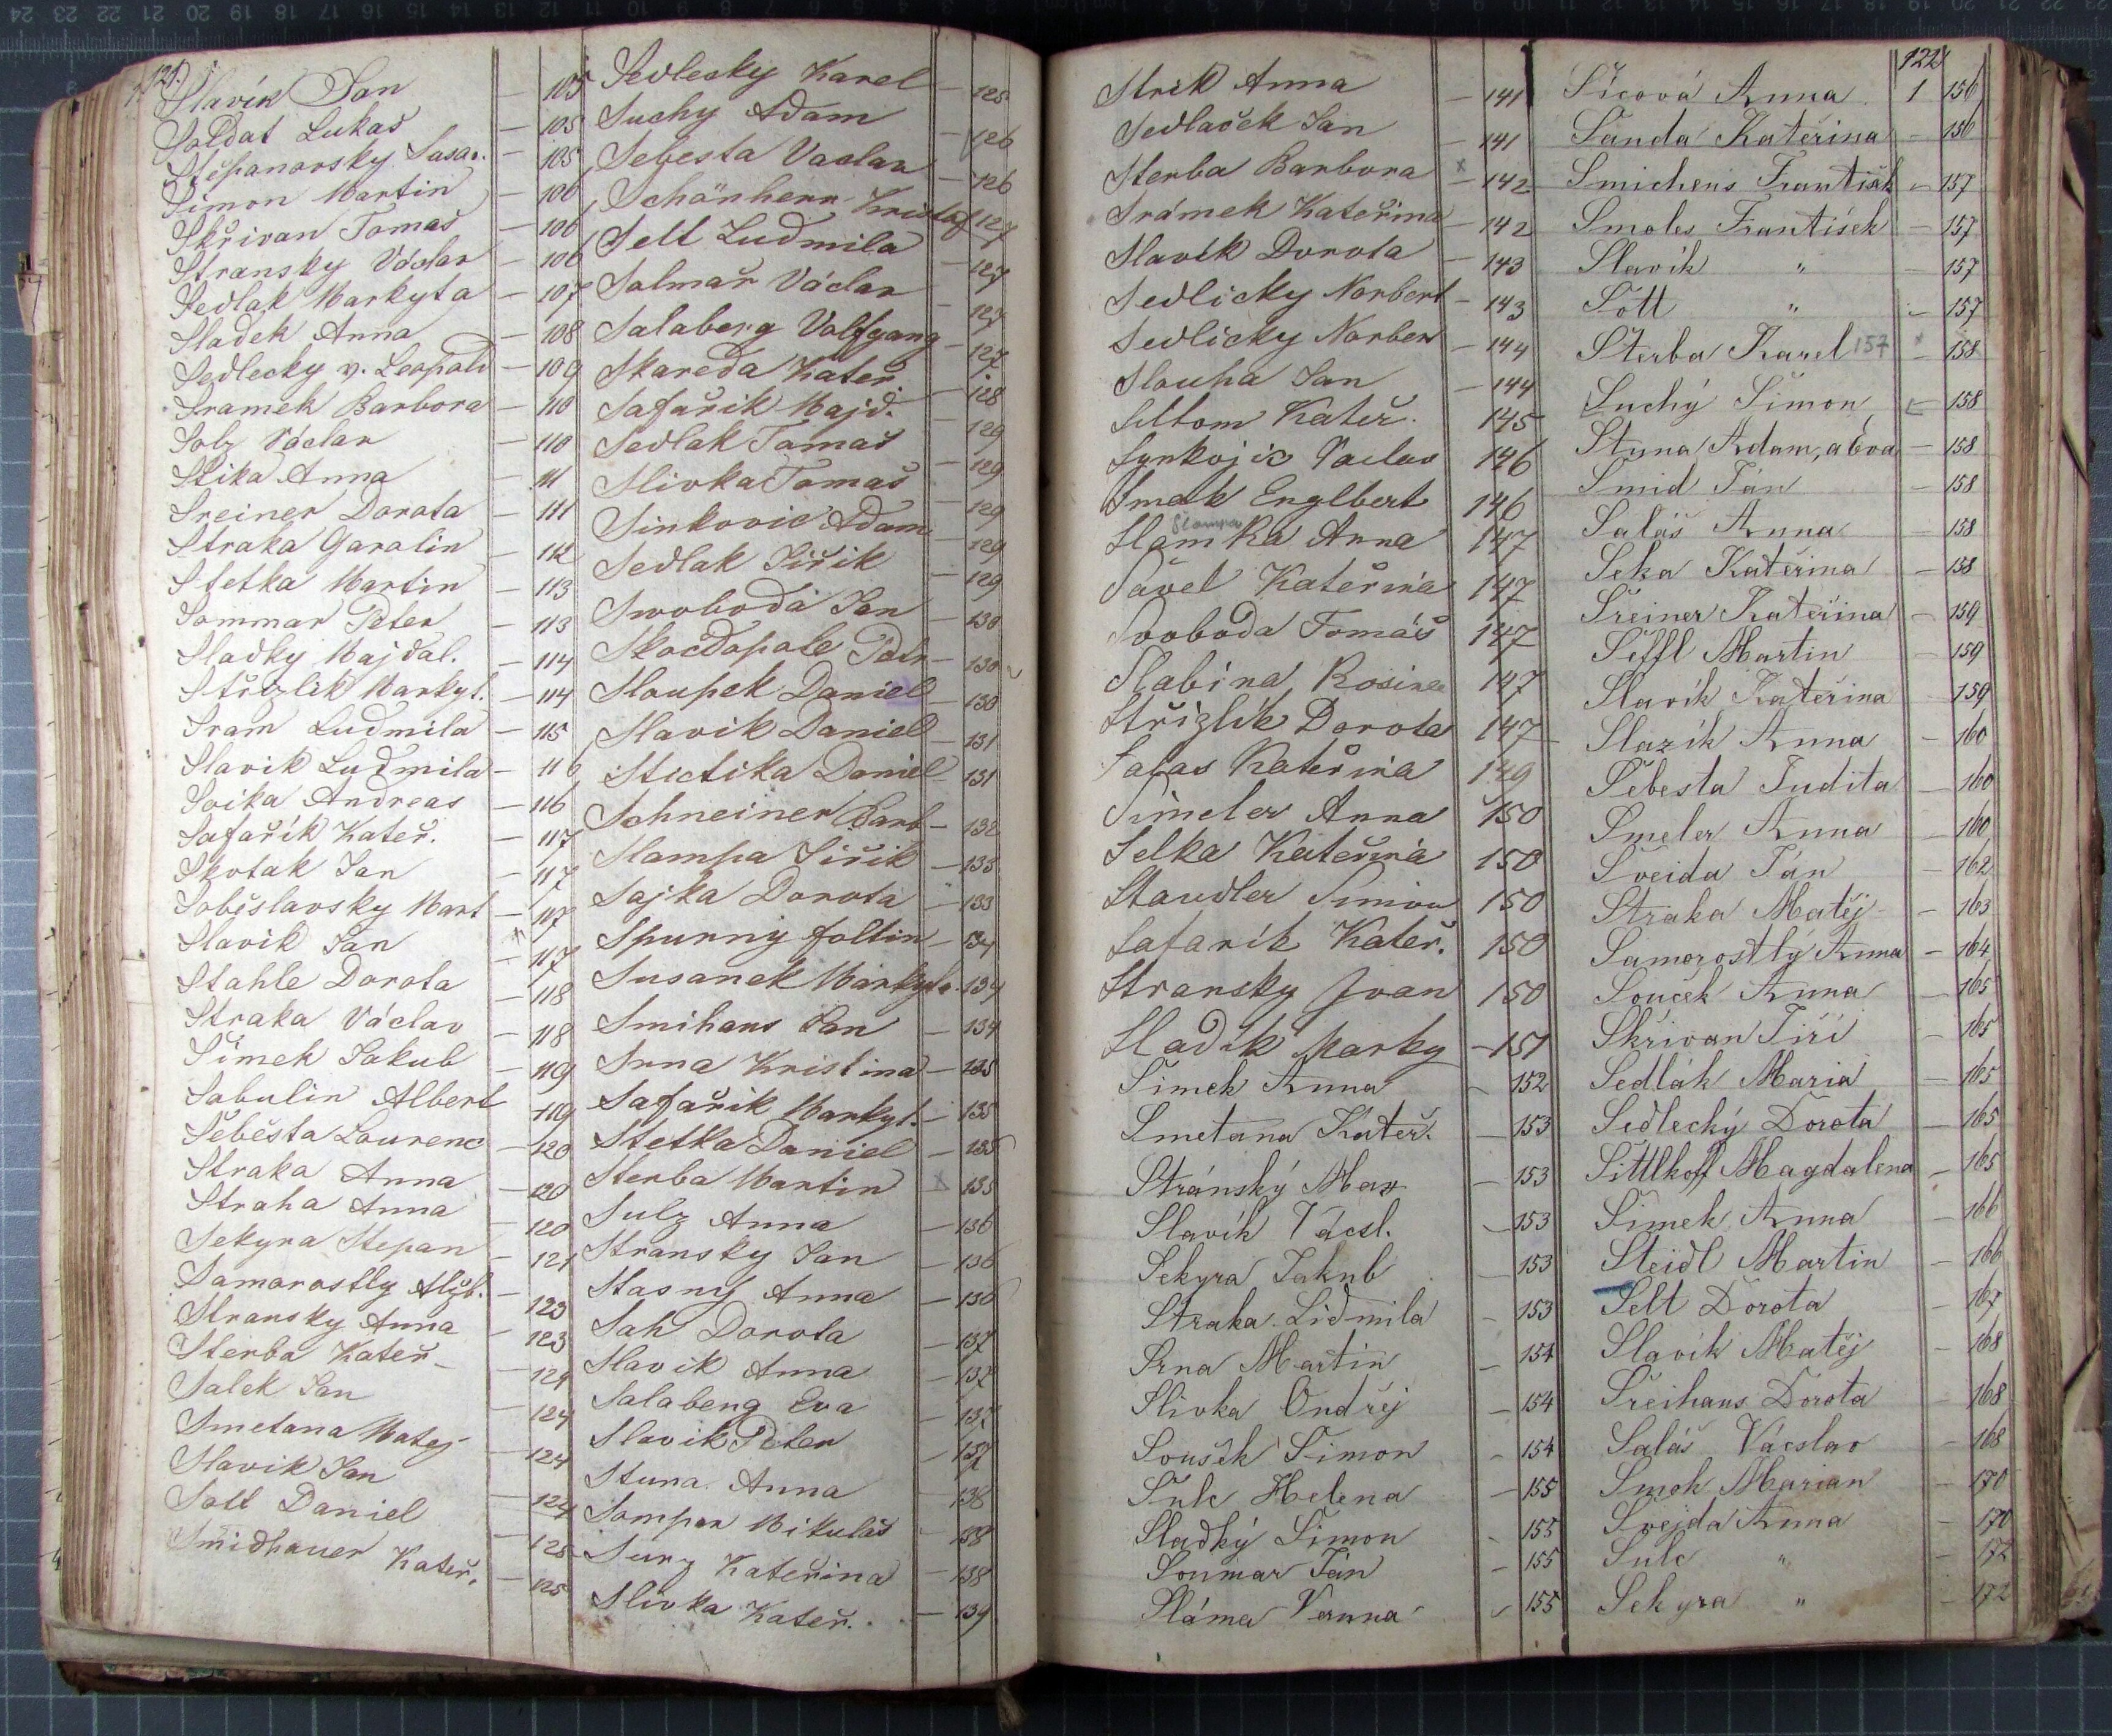 121.
Slavík Jan — 105
Soldat Lukaš — 105
Stěpanovsky Susan. — 105
Šimon Martin — 106
Skřivan Tomaš — 106
Stransky Václav — 106
Sedlak Markyta — 107
Sladek Anna — 108
Sedlecky v. Leopold — 109
Sramek Barbora — 110
Solz Václav — 110
Stika Anna — 111
Sreiner Dorota — 111
Straka Garolin — 112
Stetka Martin — 113
Sommar Peter — 113
Sladky Majdal. — 114
Střizlik Markyt. — 114
Sram Ludmila — 115
Slavik Ludmila — 116
Soika Andreas — 116
Safařík Kateř. — 117
Skotak Jan — 117
Soběslavsky Mart — 117
Slavik Jan — 117
Stahle Dorota — 118
Straka Václav — 118
Šimek Jakub — 119
Sabulin Albert 119
Šeběsta Laurenc — 120
Straka Anna — 120
Straha Anna 120
Sekyra Stepan — 121
Samorostly Alžb. — 123
Stransky Anna — 123
Sterba Kateř — 124
Salek Jan — 124
Smetana Matej — 124
Slavik Jan — 124
Salt Daniel — 125
Smidhauer Kateř. — 125
Sedlecky Karel — 125
Suchy Adam — 126
Sebesta Vaclav — 126
Schönherr Kristof 127
Selt Ludmila — 127
Solmař Václav — 127
Salaberg Volfgang — 127
Skareda Kateř. — 128
Safařik Majd. — 129
Sedlak Tomaš — 129
Slivka Tomaš — 129
Sinkovic Adam — 129
Sedlak Jiřik — 129
Swoboda Jan — 130
Skočdopole Petr — 130
Sloupek Daniel — 130
Slavik Daniel — 131
Stictika Daniel — 131
Schneiner Barb — 132
Slampa Jiřik — 133
Sajka Dorota — 133
Spurny foltin — 134
Susanek Markyta. — 134
Smihans Jan — 134
Srna Kristina — 135
Safařik Markyt. — 135
Stetka Daniel — 135
Sterba Martin x 135
Sulz Anna — 136
Stransky Jan — 136
Stasny Anna — 136
Sah Dorota — 137
Slavik Anna — 137
Salaberg Eva — 137
Slavik Peter — 137
Stuna Anna — 138
Sompor Mikulaš — 138
Surz Kateřina — 138
Slivka Kateř. — 139
Strek Anna — 141
Sedlaček Jan — 141
Sterba Barbora x — 142
Srámek Kateřina — 142
Slavík Dorota — 143
Sedlicky Norbert — 143
Sedlicky Norber — 144
Slouha Jan — 144
Seltom Kateř. 145
Synkojic Vaclav 146
Smek Englbert 146
Slampa
Slamka Anna 147
Pavel Kateřina 147
Svoboda Tomáš 147
Slabina Rosina 147
Střizlik Dorota 147
Salas Kateřina 149
Simeler Anna 150
Selka Kateřina 150
Staudler Simon 150
Safarík Kateř. 150
Stransky Jvan 150
Sladik Marky — 151
Šimek Anna — 152
Smetana Kateř. — 153
Stránský Max — 153
Slavík Vácsl. — 153
Sekyra Jakub — 153
Straka Lidmila — 153
Srna Martin — 154
Slivka Ondřej — 154
Souček Simon — 154
Šulc Helena — 155
Sladký Šimon — 155
Soumar Ján — 155
Sláma Veruna — 155
122.
Šicová Anna 1 156
Šanda Kateřina — 156
Smichens František — 157
Smoles František — 157
Slavík „ — 157
Šott „ — 157
Sterba Karel 157 x — 158
Suchý Šimon — 158
Stuna Adam, a Eva — 158
Šmid Ján — 158
Salaš Anna — 158
Seka Kateřina — 158
Šreiner Kateřina — 159
Šeffl Martin — 159
Slavík Kateřina — 159
Slazík Anna — 160
Šebesta Judita — 160
Smeler Anna — 160
Šveida Ján — 162
Straka Matěj — 163
Samorostlý Anna — 164
Souček Anna — 165
Skřivan Jiří — 165
Sedlák Maria — 165
Sedlecký Dorota — 165
Sittlkoff Magdalena — 165
Šimek Anna — 166
Steidl Martin — 166
Selt Dorota — 167
Slavík Matěj — 168
Šreihans Dorota — 168
Salaš Vácslav — 168
Smok Marian — 170
Švejda Anna — 170
Šulc „ — 172
Sekyra „ — 172